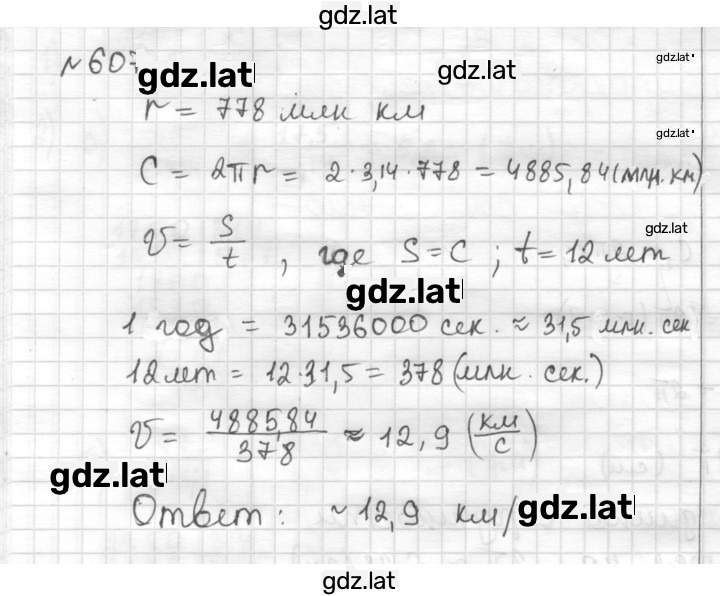 gdz.lat
№ 60
gdz.lat gdz.lat gdz.lat
r = 778 млн км
gdz.lat
C = 2πr = 2·3,14·778 = 4885,84 (млн.км)
gdz.lat
v = S/t , где S = C ; t = 12 лет
gdz.lat
1 год = 31536000 сек. ≈ 31,5 млн. сек
12 лет = 12·31,5 = 378 (млн. сек.)
v = 4885,84/378 ≈ 12,9 (км/с)
gdz.lat
Ответ: ~12,9 км/
gdz.lat
gdz.lat